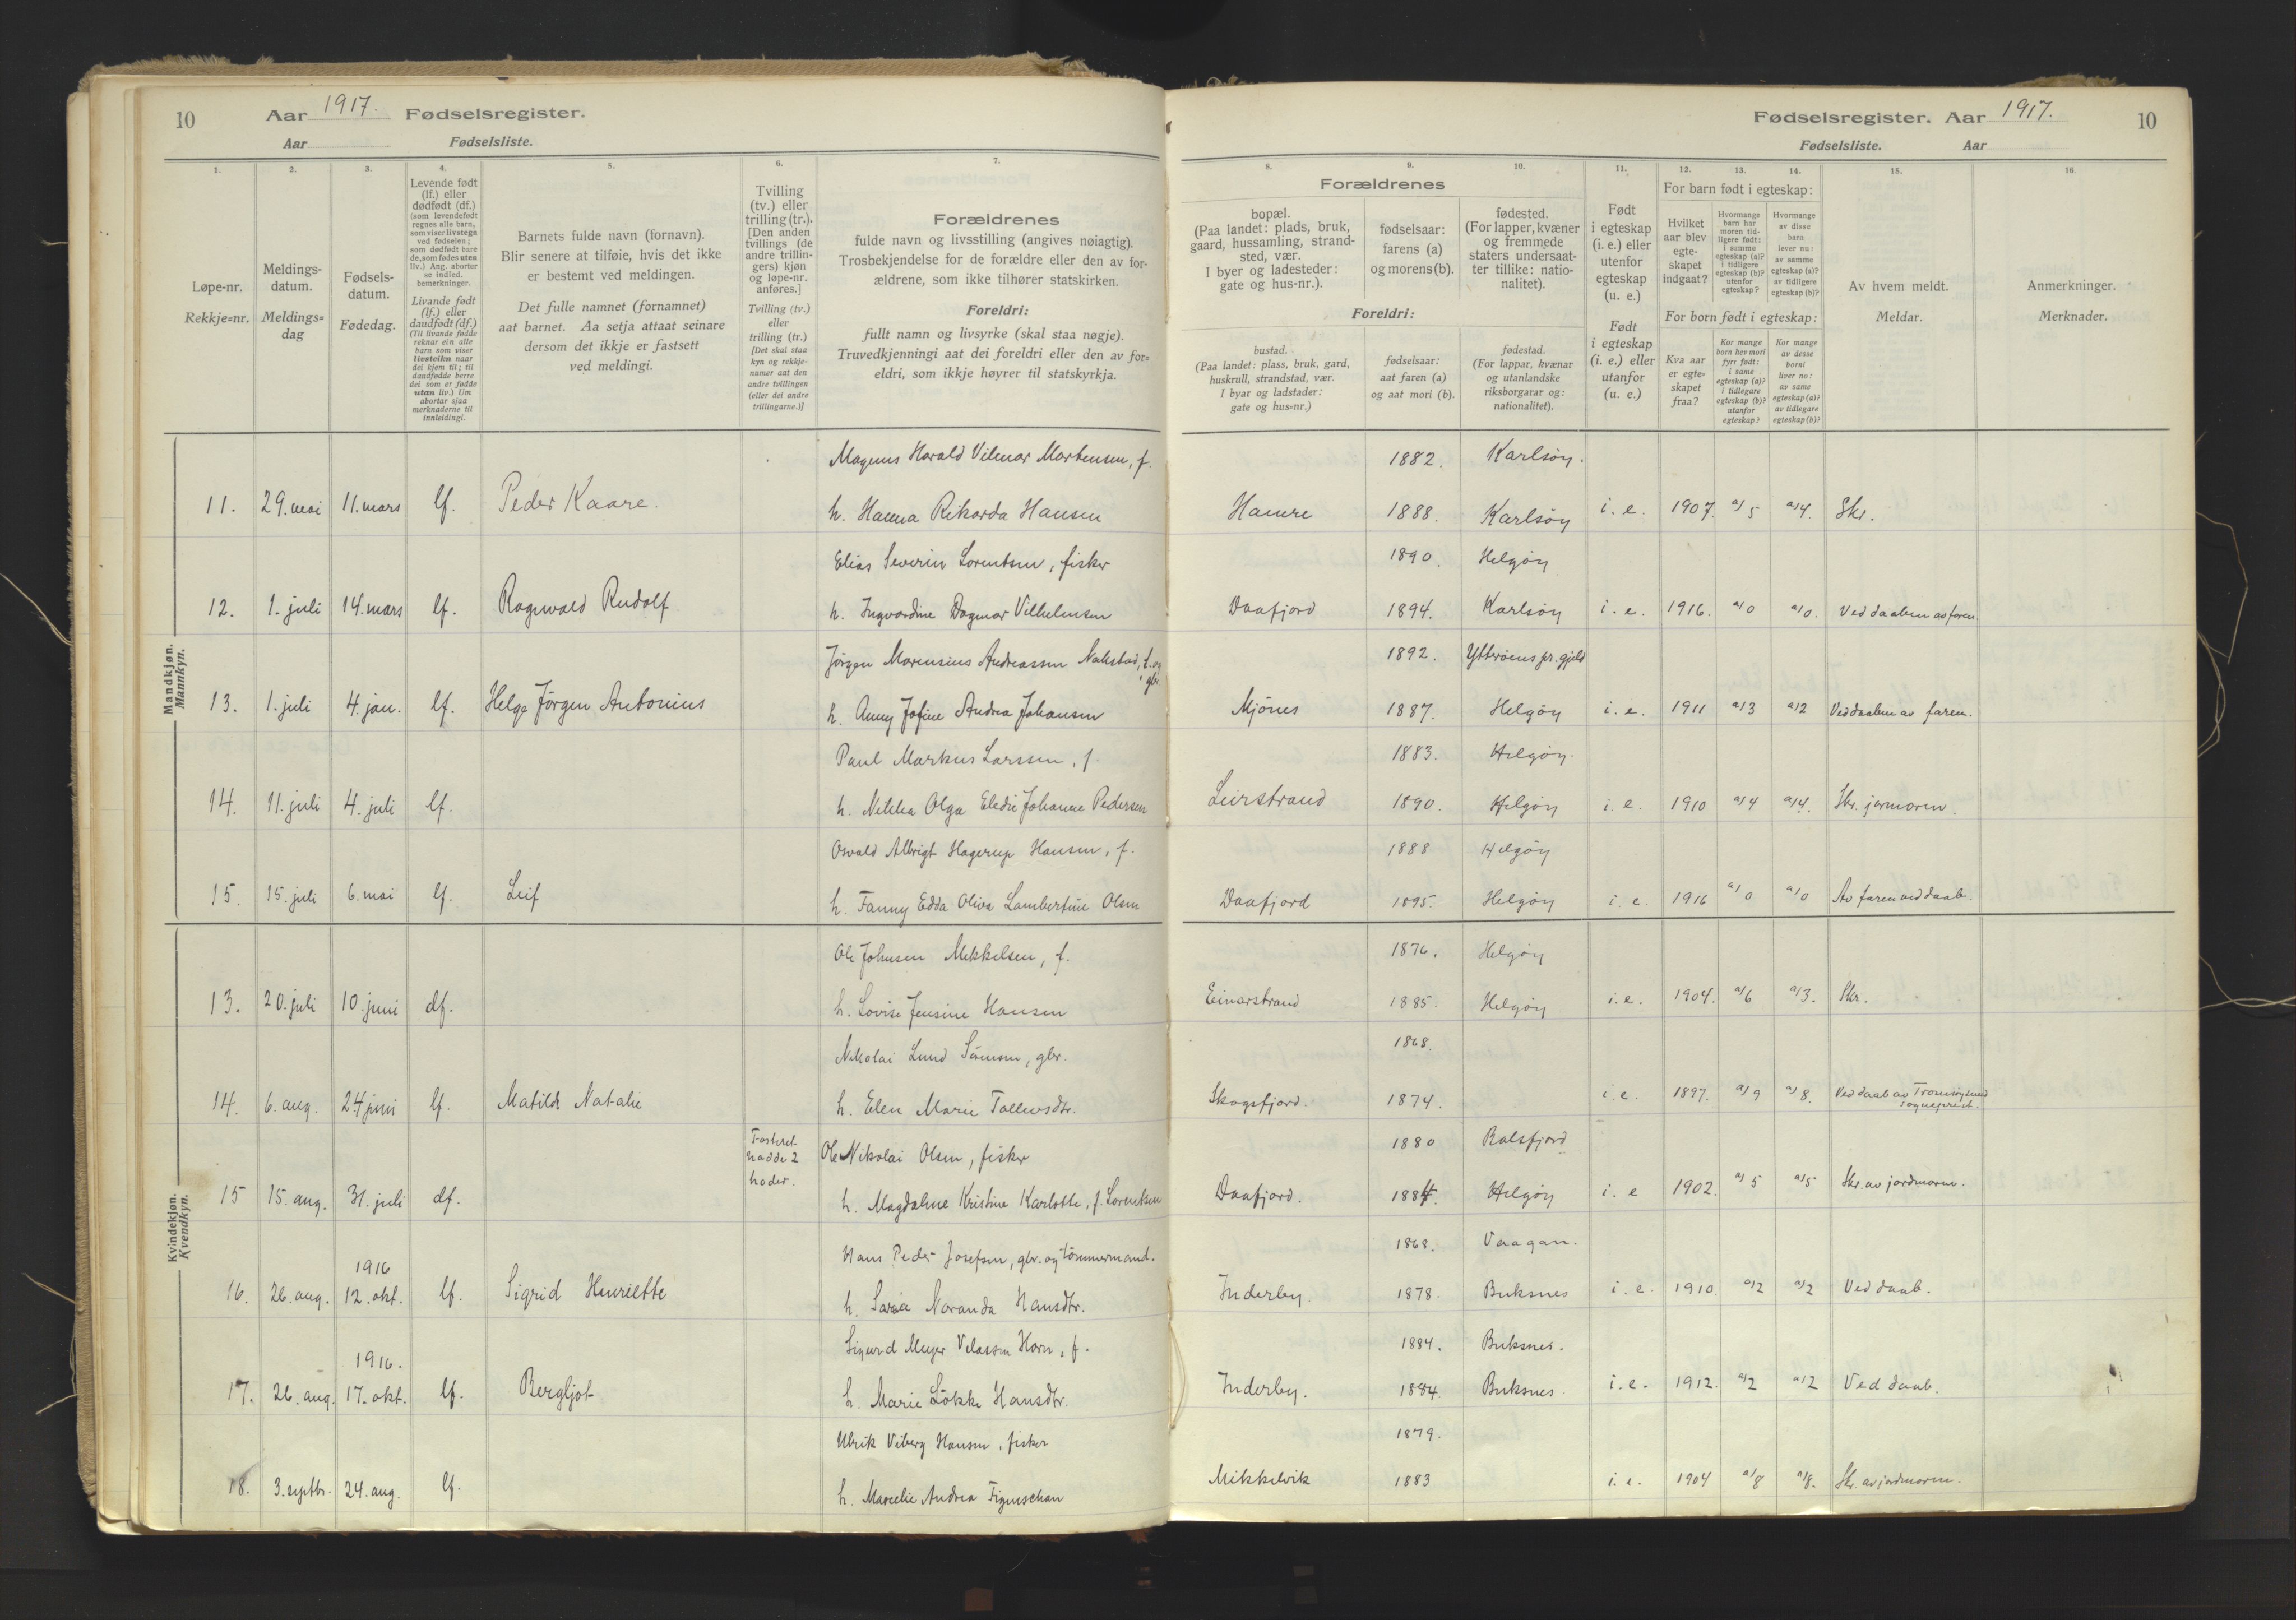 10 Aar 1917. Fødselsregister.
Aar Fødselsliste.
Fødselsregister. Aar 1917. 10
Fødselsliste. Aar
1.
Løpe-nr.
Rekkje=nr.
2.
Meldings-
datum.
Meldings=
dag
3.
Fødsels-
datum.
Fødedag.
4.
Levende født
(lf.) eller
dødfødt (df.)
(som levendefødt
regnes alle barn,
som viser livstegn
ved fødselen;
som dødfødt bare
de, som fødes uten
liv.) Ang. aborter
se indled.
bemerkninger.
Livande født
(lf.) eller
daudfødt (df.)
(Til livande fødde
reknar ein alle
barn som viser
livsteikn naar
dei kjem til; til
daudfødde berre
dei som er fødde
utan liv.) Um
abortar sjaa
merknaderne til
innleidingi.
5.
Barnets fulde navn (fornavn).
Blir senere at tilføie, hvis det ikke
er bestemt ved meldingen.
Det fulle namnet (fornamnet)
aat barnet. Aa setja attaat seinare
dersom det ikkje er fastsett
ved meldingi.
6.
Tvilling
(tv.) eller
trilling (tr.).
[Den anden
tvillings (de
andre trillin-
gers) kjøn
og løpe-nr.
anføres.]
Tvilling (tv.)
eller
trilling (tr.)
[Det skal staa
kyn og rekkje-
numer aat den
andre tvillingen
(eller dei andre
trillingarne.)]
7.
Forældrenes
fulde navn og livsstilling (angives nøiagtig).
Trosbekjendelse for de forældre eller den av for-
ældrene, som ikke tilhører statskirken.
Foreldri:
fullt namn og livsyrke (skal staa nøgje).
Truvedkjenningi aat dei foreldri eller den av for=
eldri, som ikkje høyrer til statskyrkja.
Forældrenes
8.
bopæl.
(Paa landet: plads, bruk,
gaard, hussamling, strand-
sted, vær.
I byer og ladesteder:
gate og hus-nr.).
9.
fødselsaar:
farens (a)
og morens (b).
10.
fødested.
(For lapper, kvæner
og fremmede
staters undersaat-
ter tillike: natio-
nalitet).
Foreldri:
bustad.
(Paa landet: plass, bruk, gard,
huskrull, strandstad, vær.
I byar og ladstader:
gate og hus=nr.)
fødselsaar:
aat faren (a)
og aat mori (b).
fødestad.
(For lappar, kvænar
og utanlandske
riksborgarar og:
nationalitet).
11.
Født
i egteskap
(i. e.) eller
utenfor
egteskap
(u. e.)
Født
i egteskap
(i. e.) eller
utanfor
(u. e.)
12. 13. 14.
For barn født i egteskap:
Hvilket
aar blev
egte-
skapet
indgaat?
Hvormange
barn har
moren tid-
ligere født:
i samme
egteskap (a)?
i tidligere
egteskap (b)?
utenfor
egteskap?
Hvormange
av disse
barn
lever nu:
av samme
egteskap (a)?
av tidligere
egteskap (b)?
For born født i egteskap:
Kva aar
er egte=
skapet
fraa?
Kor mange
born hev mori
fyrr født:
i same
egteskap (a)?
i tidlegare
egteskap (b)?
utanfor
egteskap?
Kor mange
av desse
borni
liver no:
av same
egteskap (a)?
av tidlegare
egteskap (b)?
15.
Av hvem meldt.
Meldar.
16.
Anmerkninger.
Merknader.
Mandkjøn.
Mannkyn.
Magnus Harald Vilmar Martensen, f. 1882. Karlsöy.
11. 29. mai 11. mars lf. Peder Kaare. h. Hanna Rikarda Hansen Hamre 1888. Karlsöy i. e. 1907. a/5 a/4. Skr.
Elias Severin Lorentsen, fisker 1890. Helgöy
12. 1. juli 14. mars lf. Ragnvald Rudolf h. Ingvardine Dagmar Vilhelmsen Daafjord 1894. Karlsöy i. e. 1916. a/0 a/0. Ved daaben av faren
Jörgen Marensius Andreassen Nakstad, f. og gbr. 1892. Ytteröens pr.gjeld
13. 1. juli 4. jan. lf. Helge Jörgen Antonius h. Anny Jofine Andrea Johansen Mjönes 1887. Helgöy i. e. 1911 a/3 a/2 Ved daaben av faren.
Paul Markus Larssen, f. 1883. Helgöy.
14. 11. juli 4. juli lf. h. Nikka Olga Eledie Johanne Pedersen Leirstrand 1890. Helgöy i. e. 1910 a/4 a/4. Skr. jormoren.
Osvald Albrigt Hagerup Hansen, f. 1888 Helgöy
15. 15. juli 6. mai lf. Leif h. Fanny Edda Oliva Lambertine Olsen Daafjord 1895. Helgöy i. e. 1916 a/0 a/0 Av faren ved daab.
Kvindekjøn.
Kvendkyn.
Ole Johnsen Mikkelsen, f. 1876. Helgöy
13. 20. juli 10. juni df. h. Lovise Jensine Hansen Einarstrand 1885. Helgöy i. e. 1904. a/6 a/3. Skr.
Nikolai Lund Sörensen, gbr. 1868.
14. 6. aug. 24 juni lf. Matilde Natalie h. Elen Marie Tollevsdtr. Skogsfjord. 1874. i. e. 1897. a/9 a/8. Ved daab av Tromöysund sogneprest.
Fosteret hadde 2 hoder. Ole Nikolai Olsen, fisker 1880 Balsfjord
15 15. aug. 31. juli df. h. Magdalene Kristine Karlotte, f. Lorentsen Daafjord. 1884. Helgöy i. e 1902. a/5 a/5 Skr. av jordmoren.
Hans Peder Josefsen, gbr. og tömmermand. 1868. Vaagan.
16. 26. aug. 1916 12. okt. lf. Sigrid Henriette h. Sara Noranda Hansdtr. Inderby. 1878. Buksnes i. e. 1910. a/2 a/2 Ved daab.
Sigurd Meyer Velassen Horn, f. 1884. Buksnes.
17. 26. aug. 1916. 17. okt. lf. Bergljot h. Marie Lökke Hansdtr. Inderby. 1884. Buksnes. i. e. 1912. a/2 a/2 Ved daab.
Ulrik Viberg Hansen, fisker 1879.
18. 3. septbr. 24. aug. lf. h. Marcelie Andrea Figenschau Mikkelvik 1883 i. e. 1904 a/8 a/8. Skr. av jordmoren.